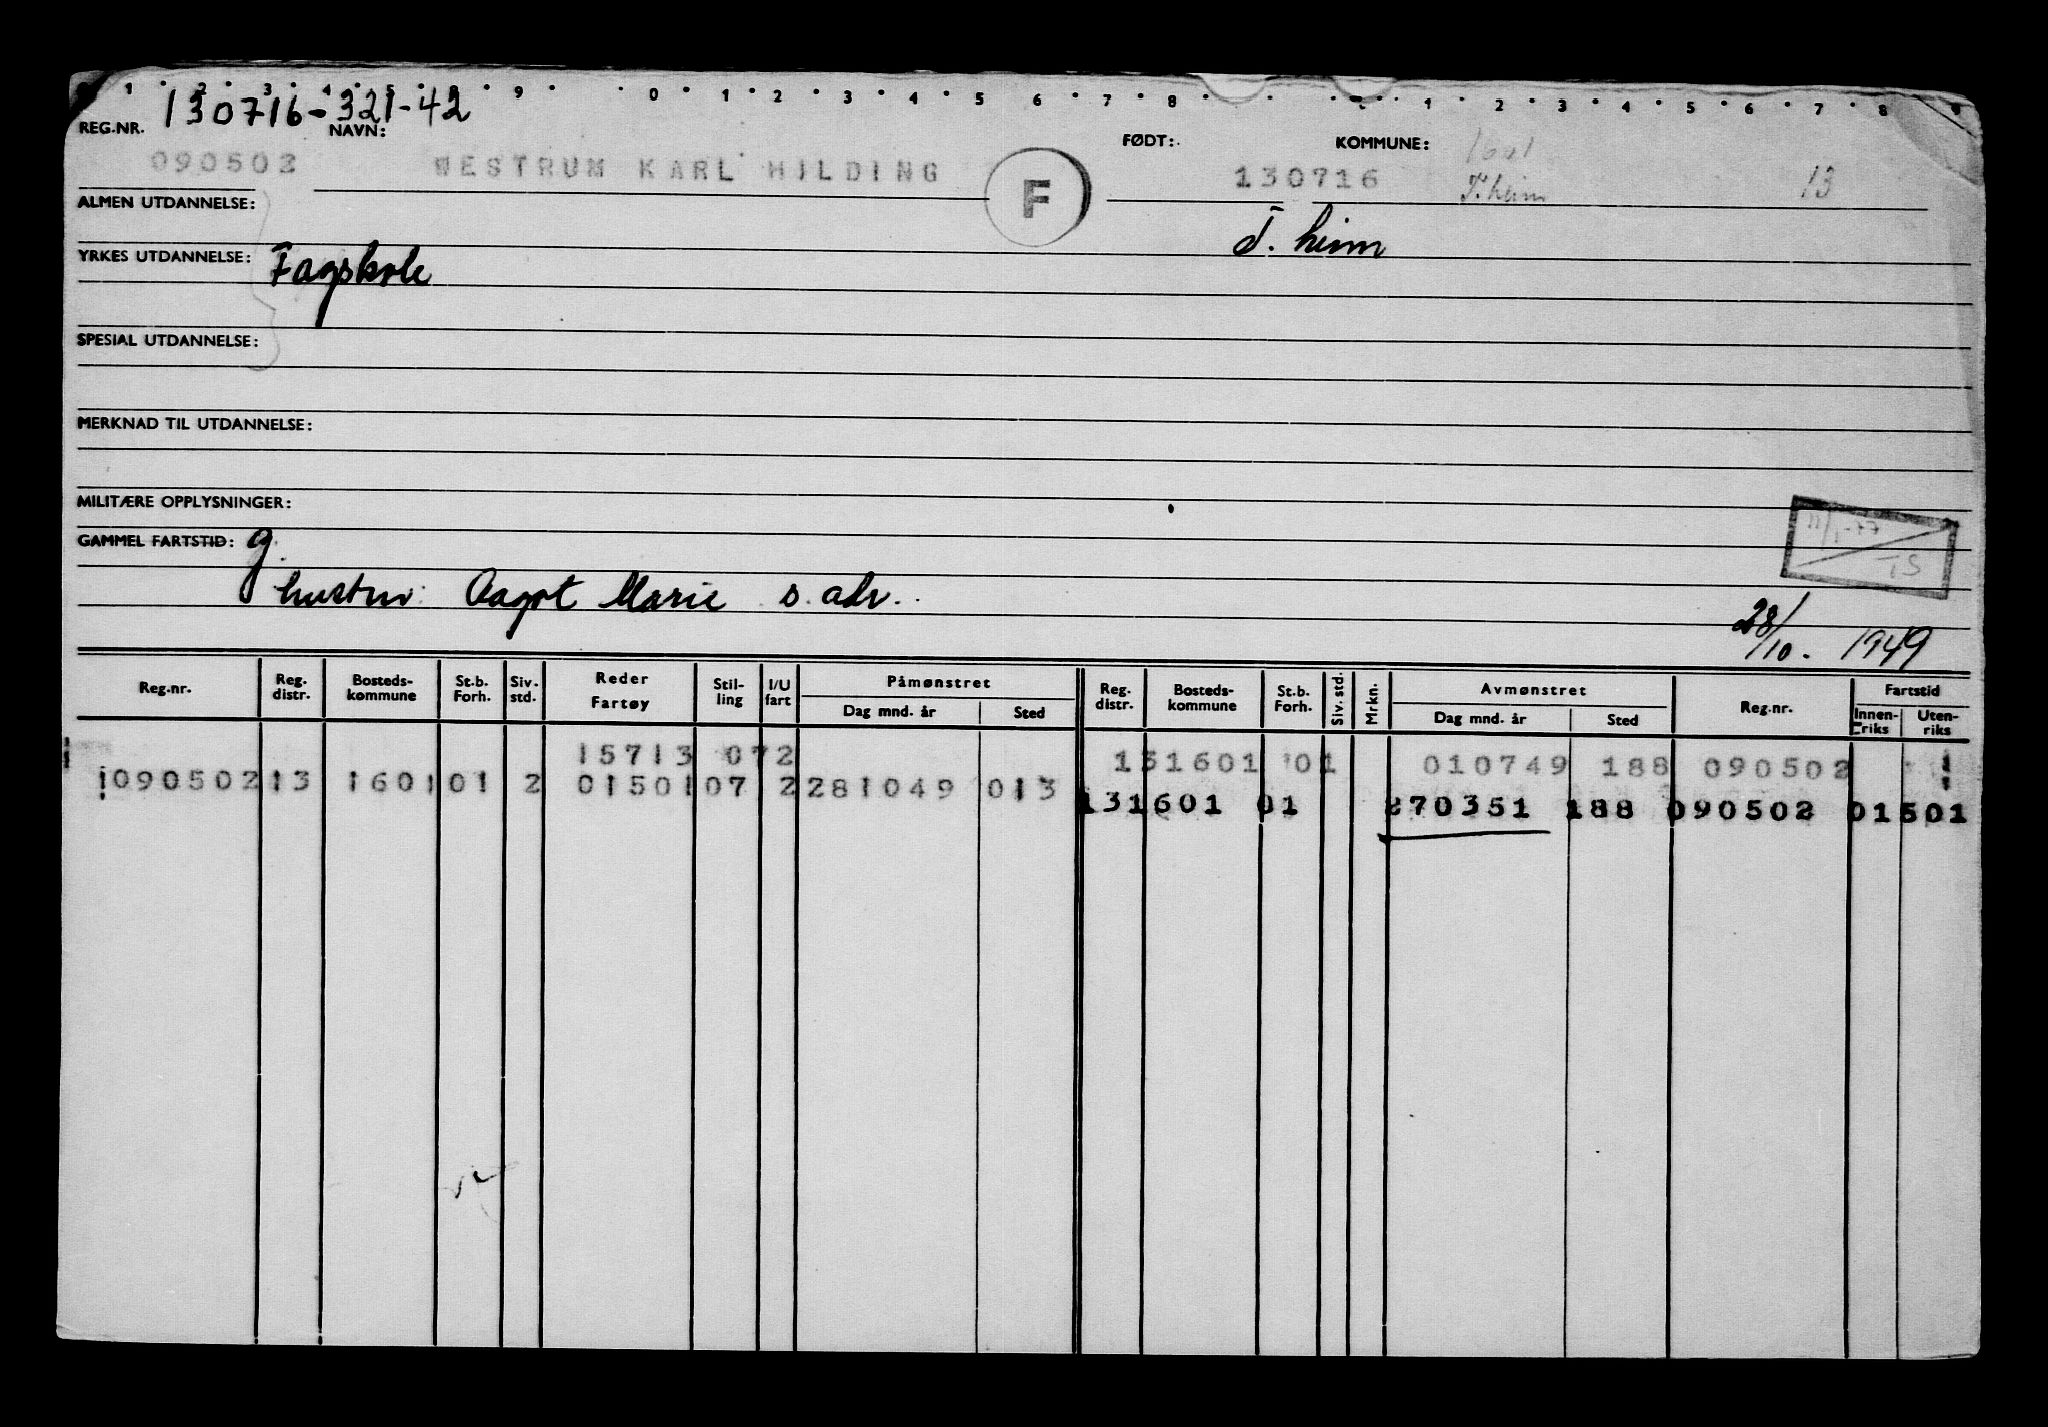 1 2 3 4 5 9 0 1 2 3 4 5 6 7 8 1 2 3 4 5 6 7 8 9
130716-321-42
REG.NR. NAVN: FØDT: KOMMUNE: 1601
090502 WESTRUM KARL HILDING F 130716 T.heim 13
ALMEN UTDANNELSE:
T. heim
YRKES UTDANNELSE: Fagskole
SPESIAL UTDANNELSE:
MERKNAD TIL UTDANNELSE:
MILITÆRE OPPLYSNINGER:
11/1-77
TS
GAMMEL FARTSTID: g.
hustru: Aagot Marie s. adr.
28/10. 1949
Reg.nr. Reg. distr. Bosteds-kommune St.b. Forh. Siv. std. Reder Fartøy Stil-ling I/U fart Påmønstret Dag mnd. år Sted Reg. distr. Bosteds-kommune St.b. Forh. Siv. std. Mrkn. Avmønstret Dag mnd. år Sted Reg.nr. Fartstid Innen-riks Uten-riks
15713 072 131601 01 010749 188 090502
090502 13 1601 01 2 01501 07 2 281049 013
131601 01 270351 188 090502 01501